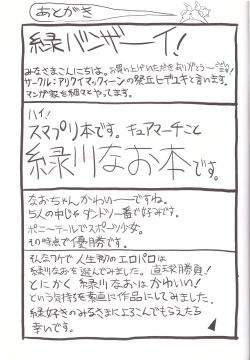 あとがき
緑バンザーイ!
みなさまこんにちは。お買い上げいただきありがとう〜ございます!
サークル:アリクイマックイーンの祭丘ヒデユキと言います。
マンガ家を細々とやってます。
ハイ!
スマプリ本です。キュアマーチこと
緑川なお本です。
なおちゃん、かわいい〜ですね。
5人の中じゃダンドツ一番で好みです。
ポニーテールでスポーツ少女。
その時点で優勝です。
そんなワケで人生初のエロパロは
緑川なおを選んでみました。直球勝負!
とにかく緑川なおはかわいい!
という気持ちを素直に作品にしてみました。
緑好きのみなさまによろこんでもらえたら
幸いです。